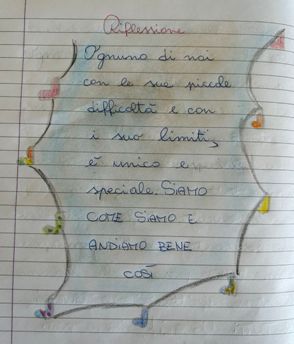 Riflessione
Ognuno di noi
con le sue piccole
difficoltà e con
i suo limiti,
è unico e
speciale. SIAMO
COME SIAMO E
ANDIAMO BENE
COSÌ